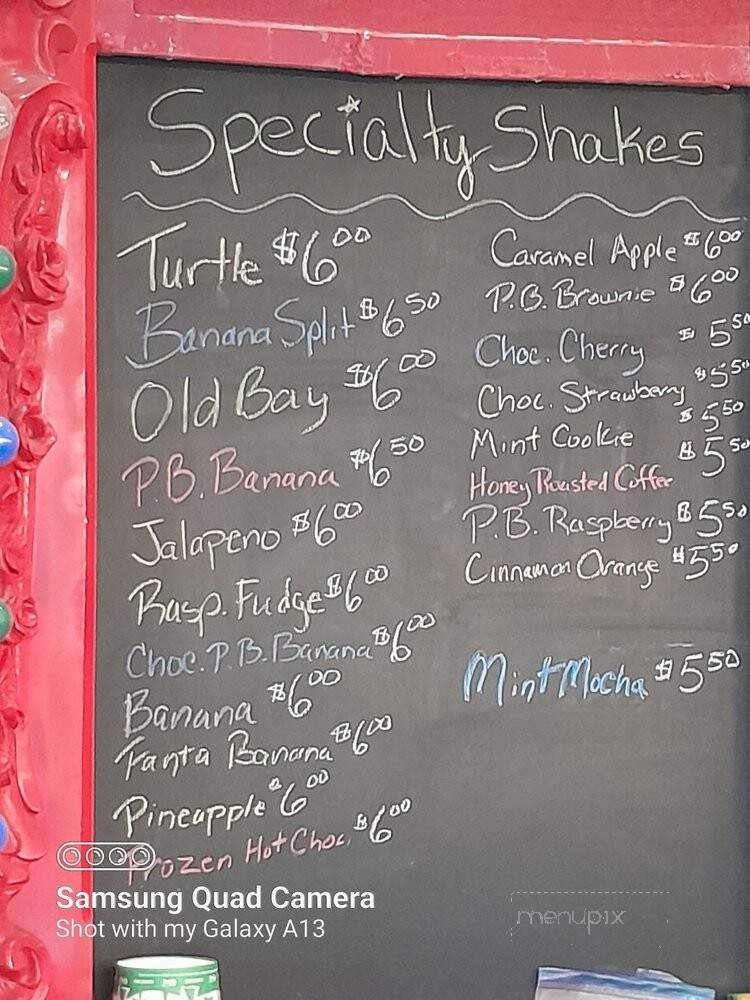 Specialty Shakes
Turtle $6.00
Banana Split $6.50
Old Bay $6.00
P.B. Banana $6.50
Jalapeno $6.00
Rasp. Fudge $6.00
Choc. P.B. Banana $6.00
Banana $6.00
Fanta Banana $6.00
Pineapple $6.00
Frozen Hot Choc. $6.00
Caramel Apple $6.00
P.B. Brownie $6.00
Choc. Cherry $5.50
Choc. Strawberry $5.50
Mint Cookie $5.50
Honey Roasted Coffee $5.50
P.B. Raspberry $5.50
Cinnamon Orange $5.50
Mint Mocha $5.50
Samsung Quad Camera
Shot with my Galaxy A13
menupix